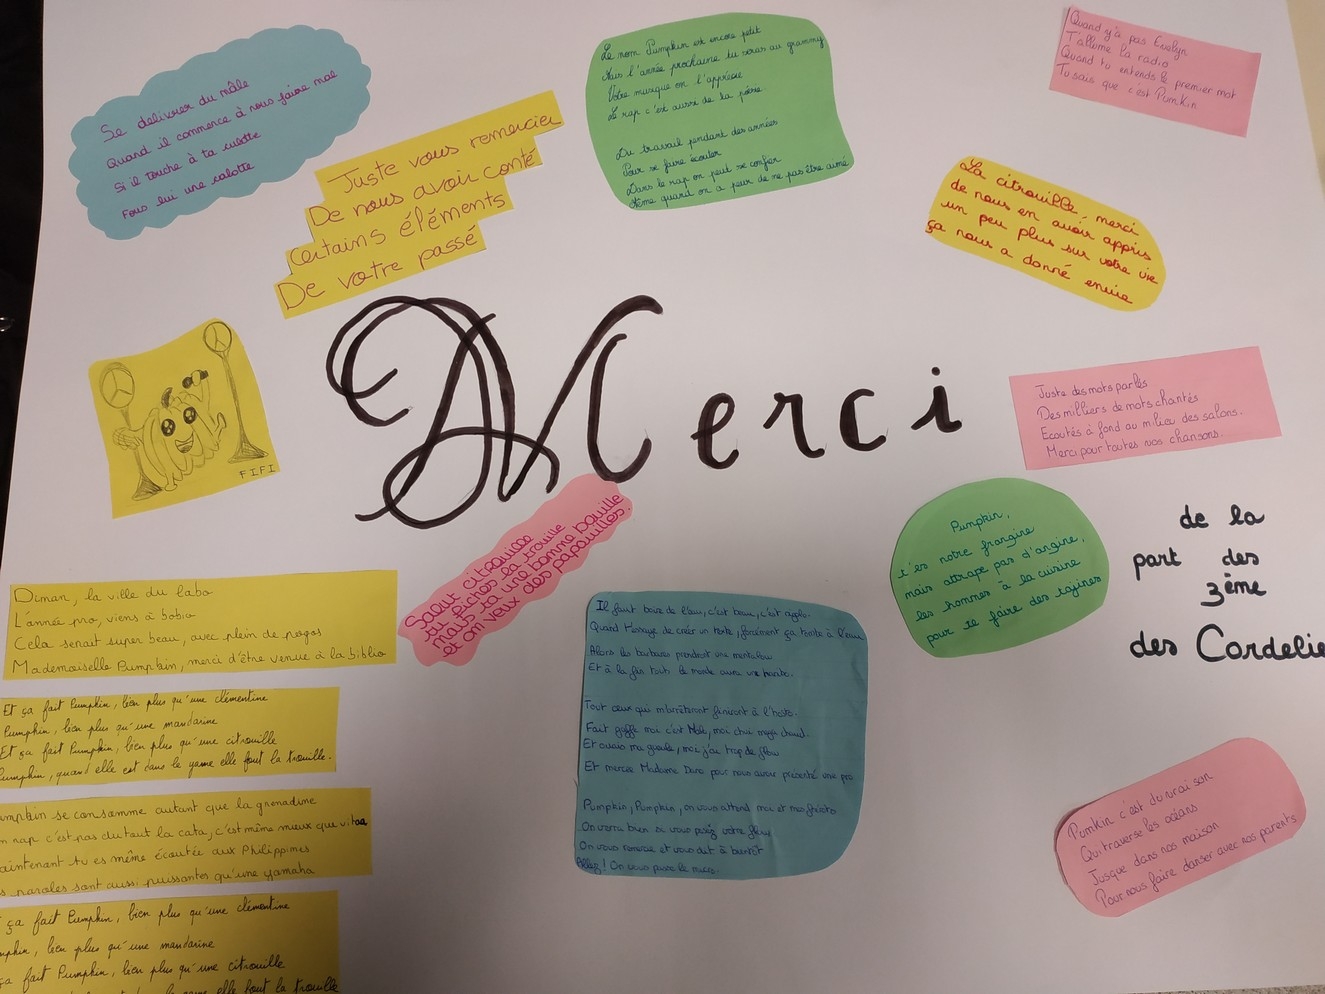 Se délivrer du mâle
Quand il commence à nous faire mal
Si il touche à ta culotte
Fous lui une calotte
Juste vous remercier
De nous avoir conté
Certains éléments
De votre passé
Le nom Pumpkin est encore petit
Mais l'année prochaine tu seras au grammy
Votre musique on l'apprécie
Le rap c'est aussi de la poésie
Du travail pendant des années
Pour se faire écouter
Dans le rap on peut se confier
Même quand on a peur de ne pas être aimé
Quand y'a pas Evelyn
T'allume la radio
Quand tu entends le premier mot
Tu sais que c'est Pumkin
La citrouille, merci
de nous en avoir appris
un peu plus sur votre vie
ça nous a donné envie
Merci
FIFI
Juste des mots parlés
Des milliers de mots chantés
Ecoutés à fond au milieu des salons.
Merci pour toutes vos chansons.
Salut citrouille
tu fiches la trouille
mais t'a une bonne bouille
et on veux des papouilles.
Pumpkin,
t'es notre frangine
mais attrape pas d'angine,
les hommes à la cuisine
pour te faire des tajines
de la
part des
3ème
des Cordelie
Dinan, la ville du labo
L'année pro, viens à bobio
Cela serait super beau, avec plein de pogos
Mademoiselle Pumpkin, merci d'être venue à la biblio
Et ça fait Pumpkin, bien plus qu'une clémentine
Pumpkin, bien plus qu'une mandarine
Et ça fait Pumpkin, bien plus qu'une citrouille
Pumpkin, quand elle est dans le game elle fout la trouille.
umpkin se consomme autant que la grenadine
n rap c'est pas du tout la cata, c'est même mieux que vitaa
aintenant tu es même écoutée aux Philippines
s paroles sont aussi puissantes qu'une yamaha
ça fait Pumpkin, bien plus qu'une clémentine
mpkin, bien plus qu'une mandarine
ça fait Pumpkin, bien plus qu'une citrouille
le game elle fout la trouille
Il faut boire de l'eau, c'est beau, c'est rigolo.
Quand j'essaye de créer un texte, forcément ça tombe à l'eau
Alors les barbares prendront une mentalow
Et à la fin tout le monde aura une
Tout ceux qui m'arrêteront finiront à l'hosto.
Fait gaffe moi c'est moi, moi chui mega chaud.
Et ouais ma gueule, moi j'ai trop de flow
Et merci Madame pour nous avoir présenté une pro
Pumpkin, Pumpkin, on vous attend moi et mes
On verra bien si vous posez votre flow
On vous remercie et vous dit à bientôt
Allez! On vous passe le micro.
Pumkin c'est du vrai son
Qui traverse les océans
Jusque dans nos maison
Pour nous faire danser avec nos parents